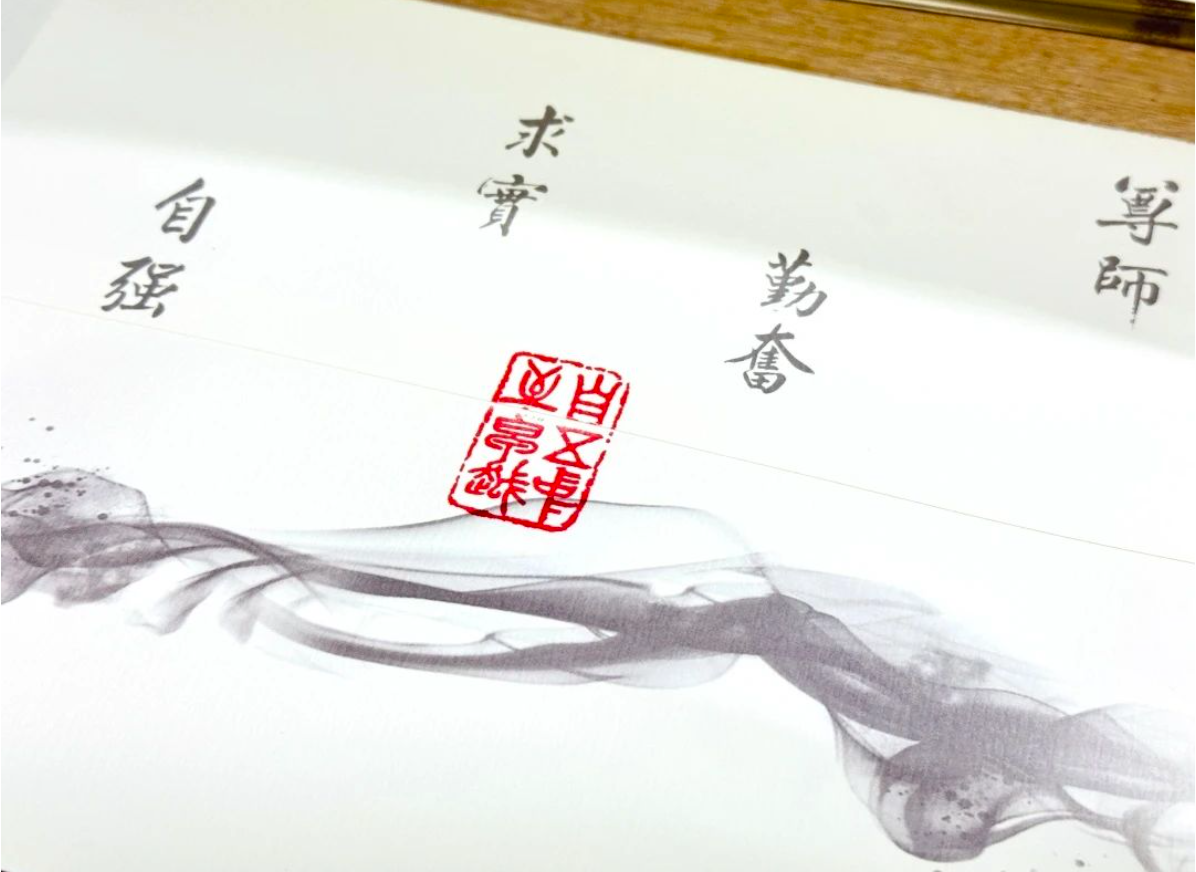 尊師
勤奮
求實
自强